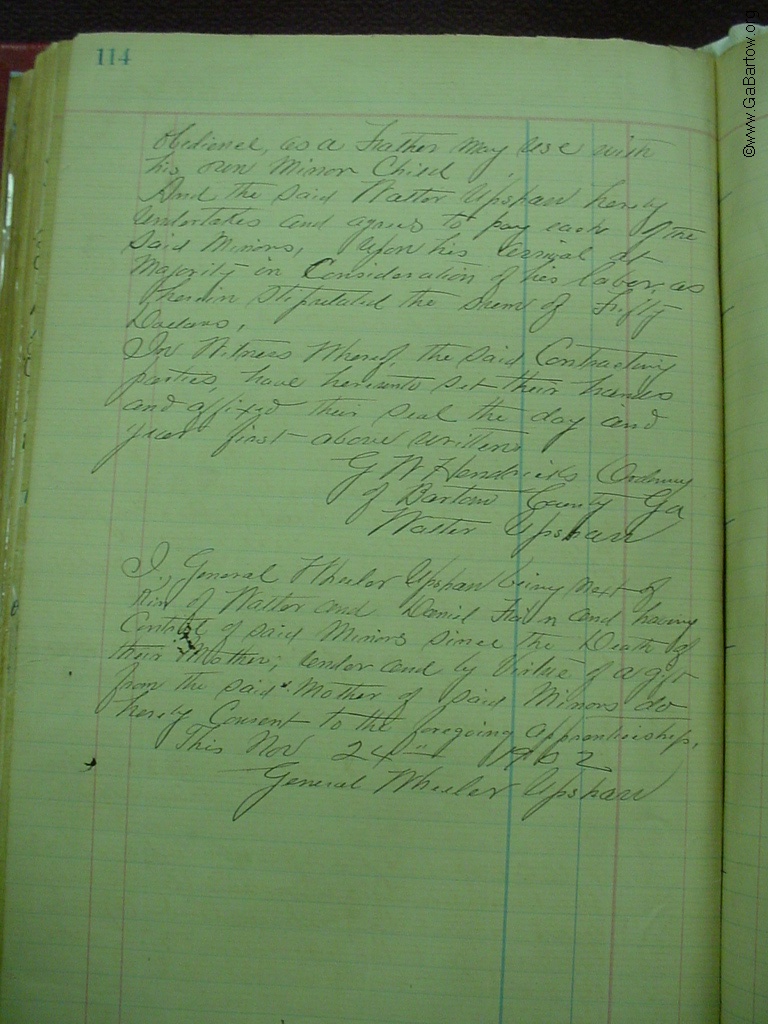 114
obedience, as a Father may use with
his own Minor Child
And the said Walter Upshaw hereby
undertakes and agrees to pay each of the
said Minors, upon his arrival at
Majority in Consideration of his labor, as
therein stipulated the sum of Fifty
Dollars,
In Witness Whereof, the said Contracting
parties, have hereunto set their hands
and affixed their seal the day and
year first above written
G W Hendricks Ordinary
of Bartow County Ga
Walter Upshaw
I, General Wheeler Upshaw being next of
Kin of Walter and Daniel and having
Control of said Minors since the Death of
their Mother, under and by Virtue of a gift
from the said Mother of said Minors do
hereby Consent to the foregoing apprenticeship,
This Nov 24" 1902
General Wheeler Upshaw
©www.GaBartow.org